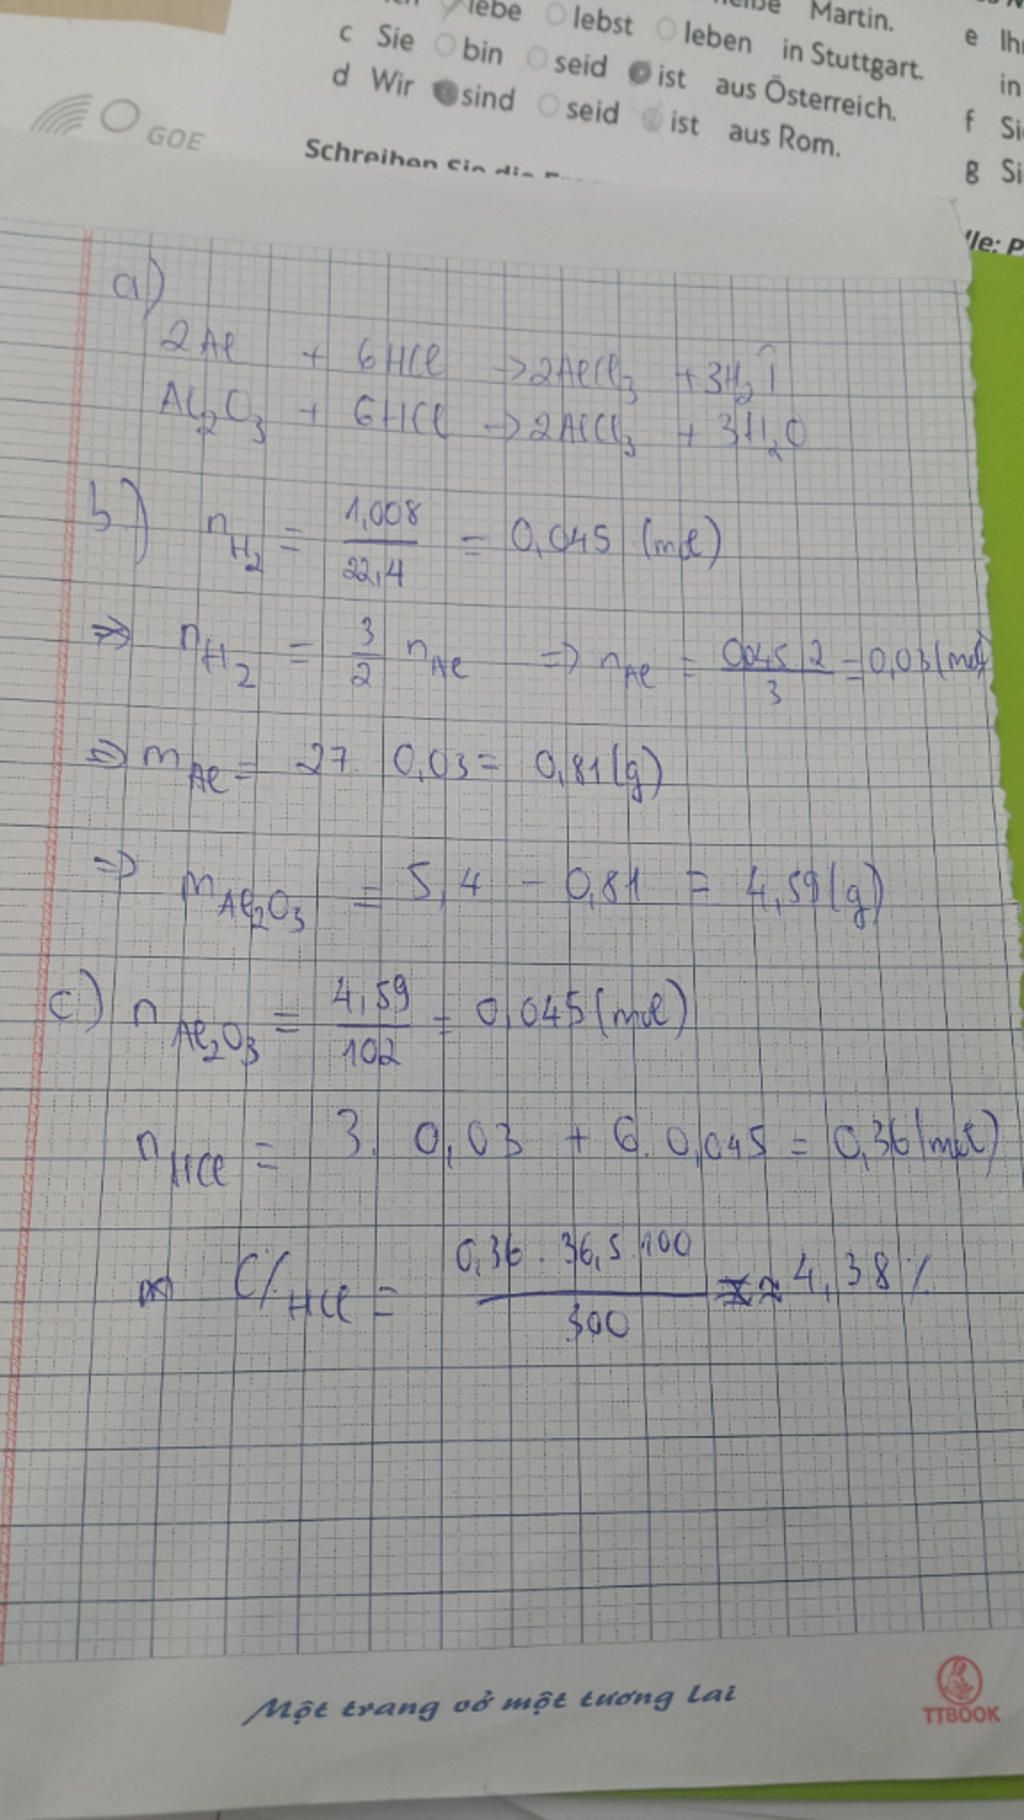 lebe lebst leben in Stuttgart.
Martin.
c Sie bin seid ist aus Österreich.
d Wir sind seid ist aus Rom.
e Ihr
in
f Si
g Si
GOE
Schreiben Sie die
lle: P
a)
2Al + 6HCl → 2AlCl₃ + 3H₂↑
Al₂O₃ + 6HCl → 2AlCl₃ + 3H₂O
b) n H₂ = 1,008 / 22,4 = 0,045 (mol)
=> n H₂ = 3/2 n Al => n Al = 0,045.2 / 3 = 0,03 (mol)
=> m Al = 27. 0,03 = 0,81 (g)
=> m Al₂O₃ = 5,4 - 0,81 = 4,59 (g)
c) n Al₂O₃ = 4,59 / 102 = 0,045 (mol)
n HCl = 3. 0,03 + 6. 0,045 = 0,36 (mol)
C% HCl = 0,36 . 36,5.100 / 300 ≈ 4,38%
Một trang vở một tương lai
TTBOOK